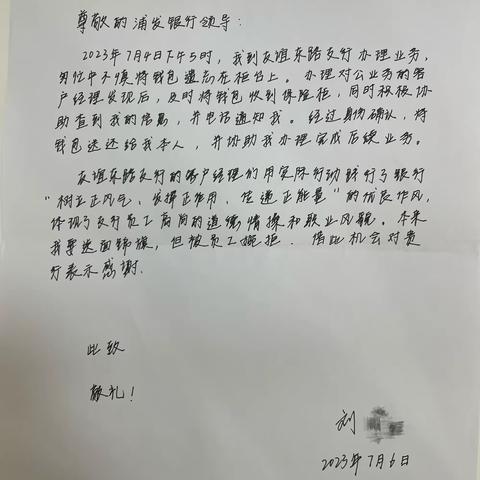 尊敬的浦发银行领导:
2023年7月4日下午5时,我到友谊东路支行办理业务,
匆忙中不慎将钱包遗忘在柜台上。办理对公业务的客
户经理发现后,及时将钱包收到保险柜,同时积极协
助查到我的信息,并电话通知我。经过身份确认,将
钱包送还给我本人,并协助我办理完成后续业务。
友谊东路支行的客户经理们用实际行动践行了银行
"树立正风气、发挥正作用、传递正能量"的优良作风,
体现了支行员工高尚的道德情操和职业风貌。本来
我要送面锦旗,但被员工婉拒.借此机会对贵
行表示感谢.
此致
敬礼!
刘
2023年7月6日